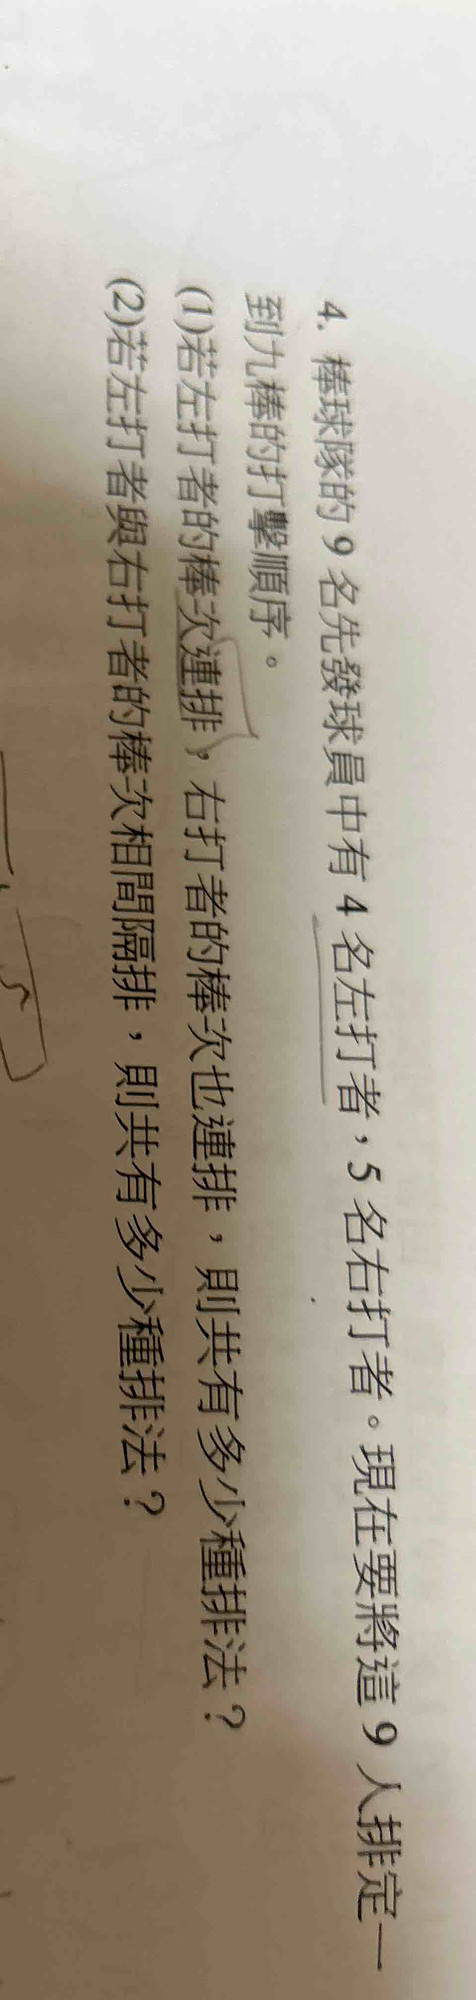 4. 棒球隊的 9 名先發球員中有 4 名左打者，5 名右打者。現在要將這 9 人排定一
到九棒的打擊順序。
(1)若左打者的棒次連排，右打者的棒次也連排，則共有多少種排法？
(2)若左打者與右打者的棒次相間隔排，則共有多少種排法？